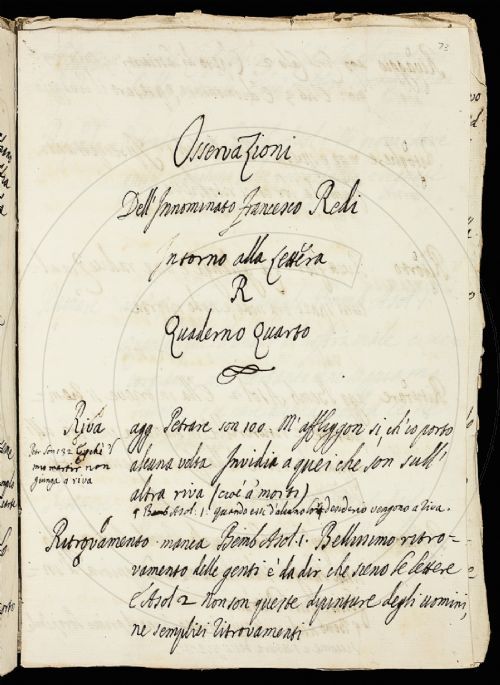 73
Osservazioni
Dell'Innominato Francesco Redi
Intorno alla Lettera
R
Quaderno Quarto
Riva agg. Petrarc son 100. M'affliggon si, ch'io porto
Petr. Son 132.
mio martir non
giunga a riva
alcuna volta Invidia a quei che son sull'
altra riva (cioè a' morti)
Bemb Asol. 1. quando essi d'alcuno lor desiderio vengono a riva.
Ritrovamento manca Bemb Asol. 1. Bellissimo ritro-
vamento delle genti è da dir che sieno le lettere
E Asol 2 non son queste dipinture degli uomini,
ne semplici ritrovamenti